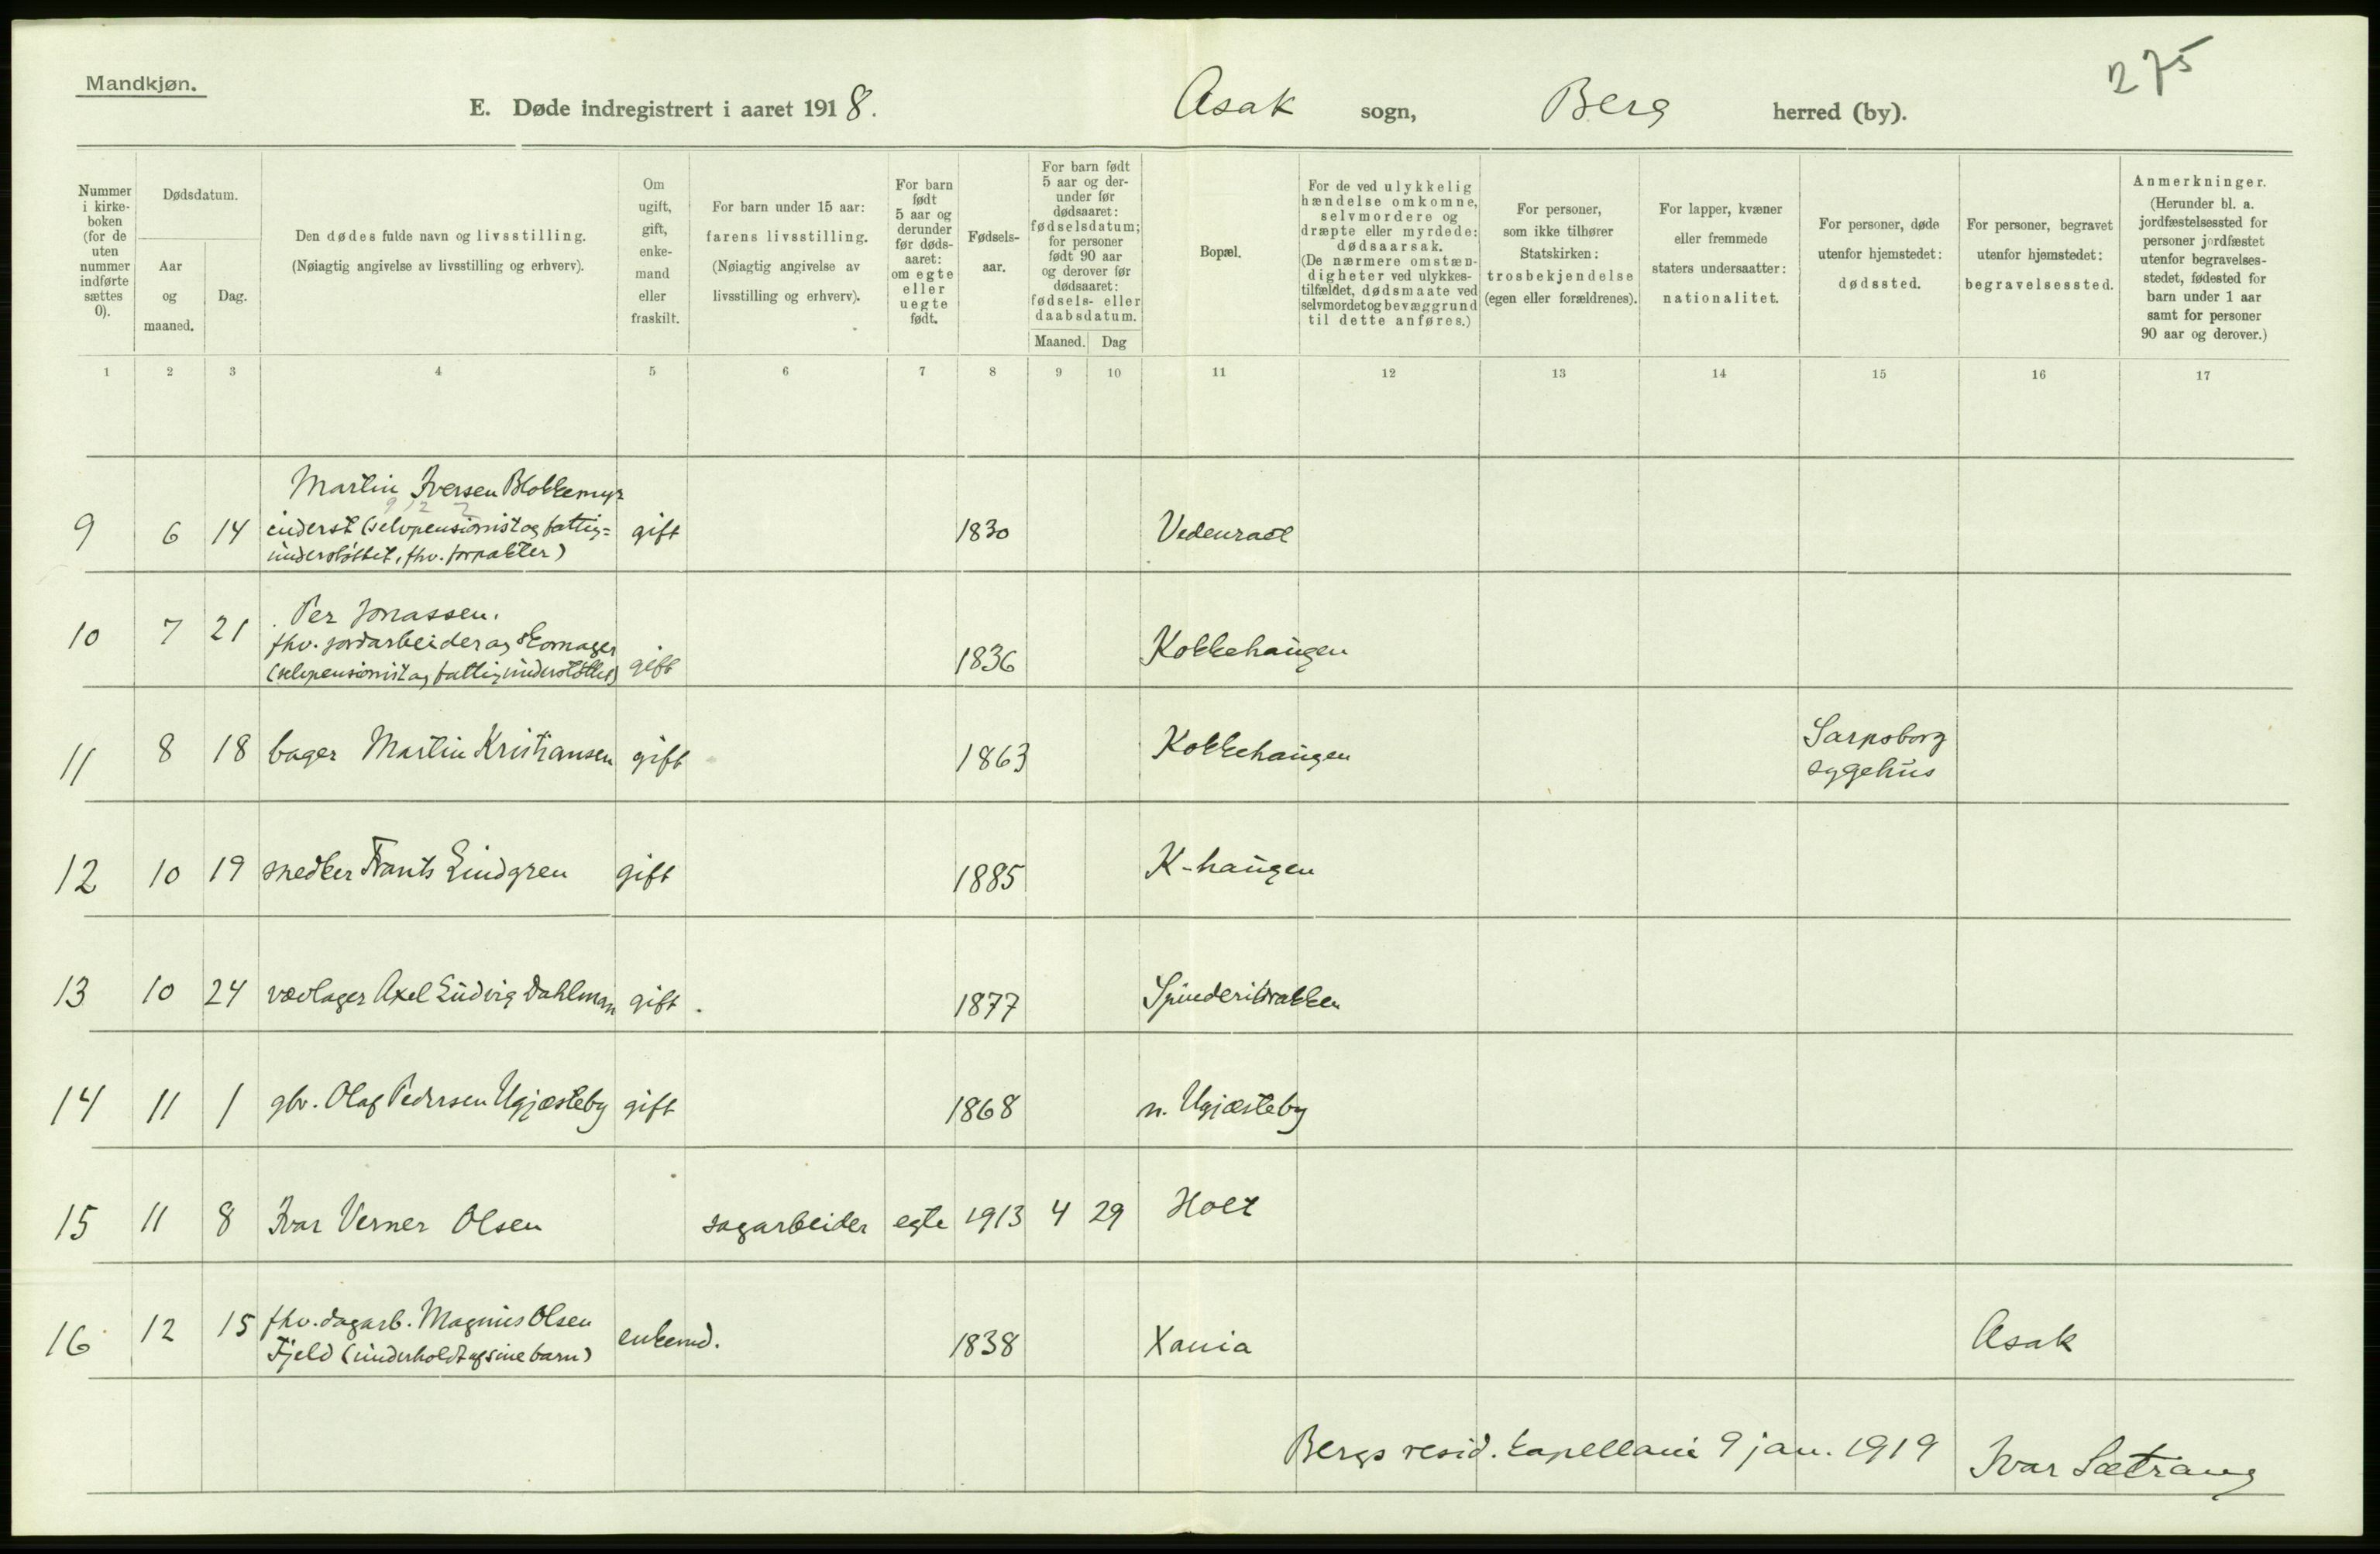 Mandkjøn.
275
E. Døde indregistrert i aaret 1918. Asak sogn, Berg herred (by).
Nummer
i kirke-
boken
(for de
uten
nummer
indførte
sættes
0).
Dødsdatum.
Aar
og
maaned.
Dag.
Den dødes fulde navn og livsstilling.
(Nøiagtig angivelse av livsstilling og erhverv).
Om
ugift,
gift,
enke-
mand
eller
fraskilt.
For barn under 15 aar:
farens livsstilling.
(Nøiagtig angivelse av
livsstilling og erhverv).
For barn
født
5 aar og
derunder
før døds-
aaret:
om egte
eller
uegte
født.
Fødsels-
aar.
For barn født
5 aar og der-
under før
dødsaaret:
fødselsdatum;
for personer
født 90 aar
og derover før
dødsaaret:
fødsels- eller
daabsdatum.
Maaned. Dag
Bopæl.
For de ved ulykkelig
hændelse omkomne,
selvmordere og
dræpte eller myrdede:
dødsaarsak.
(De nærmere omstæn-
digheter ved ulykkes-
tilfældet, dødsmaate ved
selvmordet og bevæggrund
til dette anføres.)
For personer,
som ikke tilhører
Statskirken:
trosbekjendelse
(egen eller forældrenes).
For lapper, kvæner
eller fremmede
staters undersaatter:
nationalitet.
For personer, døde
utenfor hjemstedet:
dødssted.
For personer, begravet
utenfor hjemstedet:
begravelsessted.
Anmerkninger.
(Herunder bl. a.
jordfæstelsessted for
personer jordfæstet
utenfor begravelses-
stedet, fødested for
barn under 1 aar
samt for personer
90 aar og derover.)
1 2 3 4 5 6 7 8 9 10 11 12 13 14 15 16 17
Martin Iversen Blokkemyr
9 6 14 inderst (selvpensionist og fattig= gift 1830 Vedenrød
understøttet, fhv. forpakter)
Per Jonassen.
10 7 21 fhv. jordarbeider og skomager
(selvpensionist og fattigunderstøttet) gift 1836 Kokkehaugen
11 8 18 bager Martin Kristiansen gift 1863 Kokkehaugen Sarpsborg
sygehus
12 10 19 snedker Frants Lindgren gift 1885 K-haugen
13 10 24 Axel Ludvig Dahlman gift 1877 Spinderibrakken
14 11 1 gbr. Olaf Pedersen Ugjæsteby gift 1868 n. Ugjæsteby
15 11 8 Ivar Verner Olsen sagarbeider egte 1913 4 29 Holt
16 12 15 fhv. dagarb. Magnus Olsen enkemd. 1838 Xania Asak
Fjeld (underholdt af sine barn)
Bergs resid. kapellani 9 jan. 1919 Ivar Sætrang